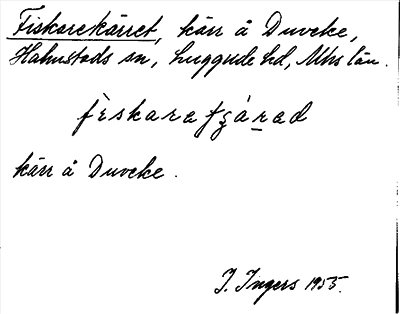 Fiskarekärret, kärr å Duveke,
Halmstads sn, Luggude hd, Mhs län.
fèskaratʃáṟad
kärr å Duveke.
I. Ingers 1955.